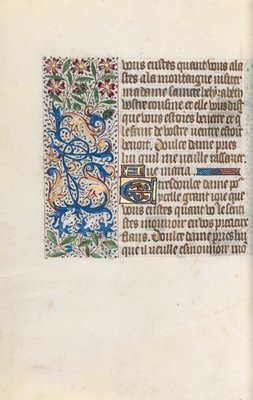 vous eustes quant vous ala
stes a la montaigne visiter
ma dame saincte helyzabeth
vostre cousine et elle vous dist
que vous estoies benoite et q
le fruit de vostre ventre estoit
benoit. Doulce dame pries
lui qui me vueille
Aue maria.
Tresdoulce dame po
celle grant ioie que
vous eustes quant vo le senti
stes mouuoir en vos precieux
flans. Doulce dame pries lui
que il vueille esmouuoir mo